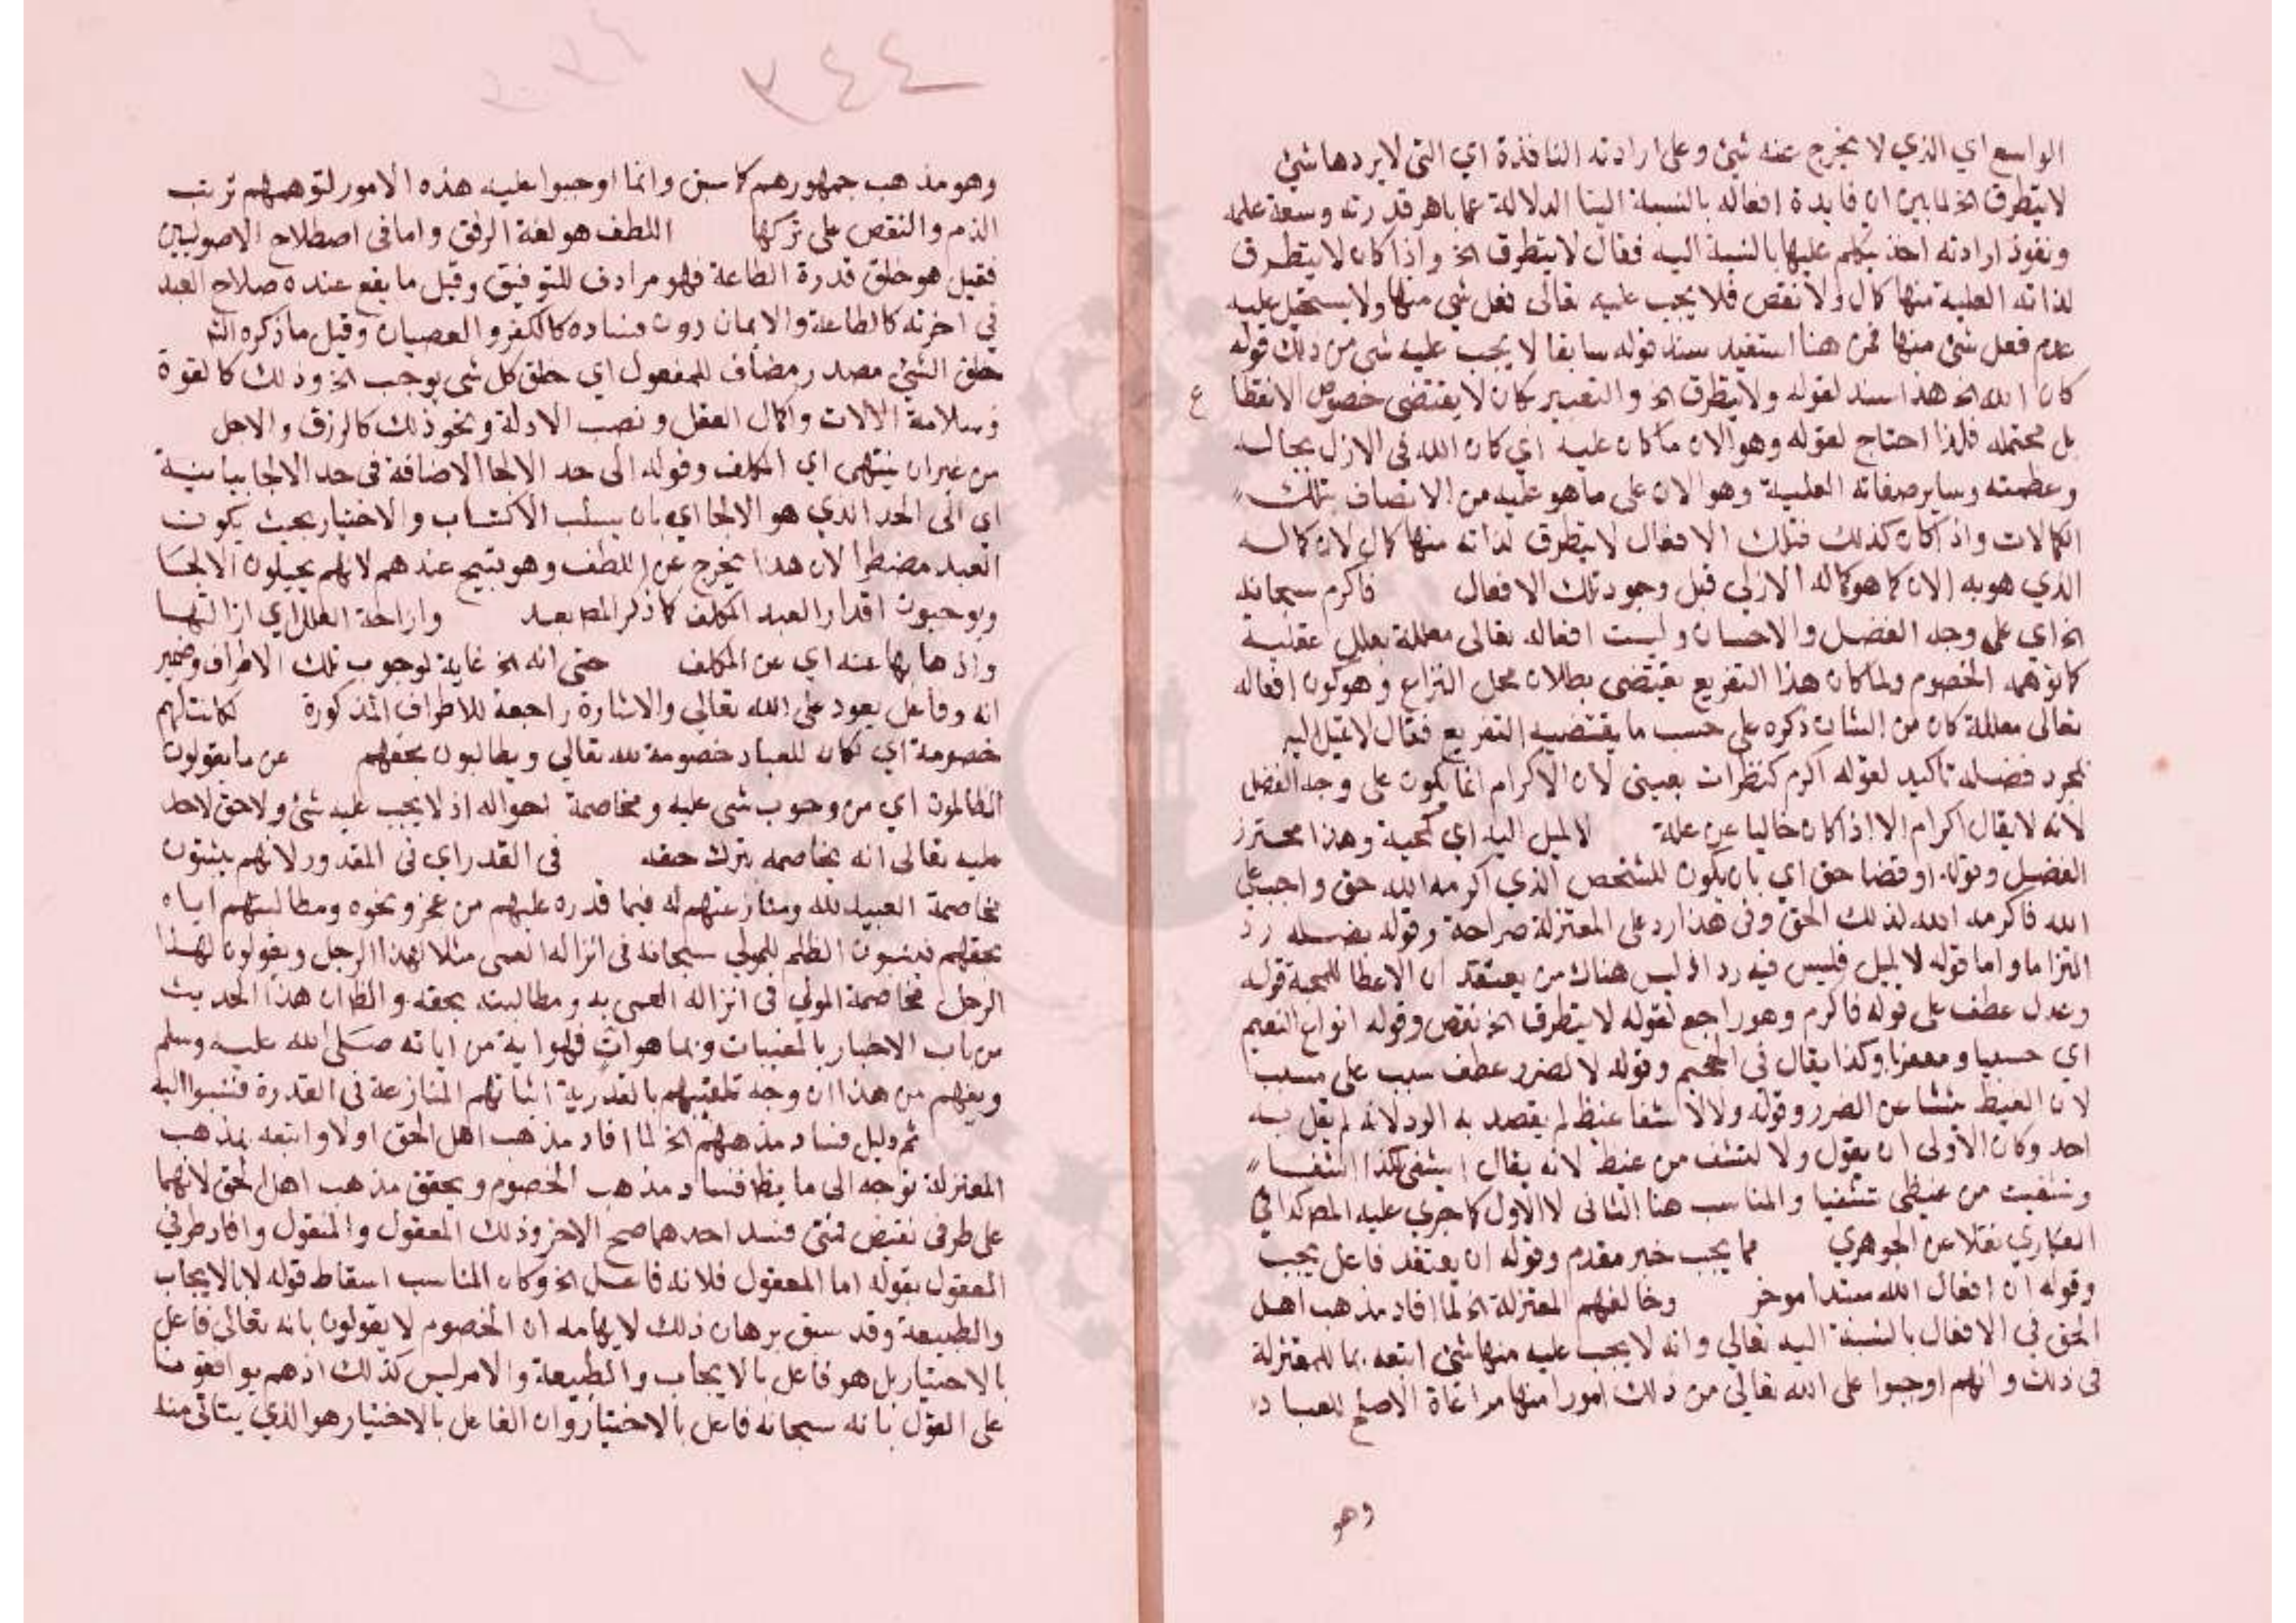 الواسع اي الذي لا يخرج عنه شئ وعلى ارادته النافذة اي التي لا يردها شئ
لا يتطرق الخ لما بين ان فايدة افعاله بالنسبة الينا الدلالة على باهر قدرته وسعة علمه
ونفوذ ارادته اخذ يتكلم عليها بالنسبة اليه فقال لا يتطرق الخ واذا كان لا يتطرق
لذاته العلية منها كمال ولا نقص فلا يجب عليه تعالى فعل شي منها ولا يستحيل عليه
عدم فعل شئ منها فمن هنا استفيد سند قوله سابقا لا يجب عليه شي من ذلك قوله
كان الله الخ هذا سند لقوله ولا يتطرق الخ والتعبير بكان لا يقتضي خصوص الانقطا ع
بل محتمله فلذا احتاج لقوله وهو الان ما كان عليه اي كان الله في الازل بجاله
وعظمته وساير صفاته العلية وهو الان على ما هو عليه من الاتصاف بتلك
الكمالات واذا كان كذلك فتلك الافعال لا يتطرق لذاته منها كمال لان كماله
الذي هو به الان كما هو كماله الازلي قبل وجود تلك الافعال فاكرم سبحانه
الخ اي على وجه الفضل والاحسان وليست افعاله تعالى معللة بعلل عقلية
كما توهمه الخصوم ولما كان هذا التفريع يقتضي بطلان محل النزاع وهو كون افعاله
تعالى معللة كان من الشان ذكره على حسب ما يقتضيه التفريع فقال لا لميل اليه
بمجرد فضله تاكيد لقوله اكرم كنظرات بعيني لان الاكرام انما يكون على وجه الفضل
لانه لا يقال اكرام الا اذا كان خاليا عن علة لا لميل اليه اي كمحبة وهذا محترز
الفضل وقوله او قضا حق اي بان يكون للشخص الذي اكرمه الله حق واجب على
الله فاكرمه الله لذلك الحق وفي هذا رد على المعتزلة صراحة وقوله بفضله رد
التزاما واما قوله لا لميل فليس فيه رد اذ ليس هناك من يعتقد ان الاعطا للمحبة قوله
وعدل عطف على قوله فاكرم وهو راجع لقوله لا يتطرق الخ نقص وقوله انواع النعيم
اي حسيا ومعنويا وكذا يقال في الجحيم وقوله لا لضرر عطف سبب على مسبب
لان الغيظ ينشا عن الضرر وقوله ولا لاشفا غيظ لم يقصد به الرد لانه لم يقل به
احد وكان الاولى ان يقول ولا لتشف من غيظ لانه يقال اشتفى بكذا اشتفا
وتشفيت من غيظي تشفيا والمناسب هنا الثاني لا الاول كما جرى عليه المص كذا في
العكاري نقلا عن الجوهري مما يجب خبر مقدم وقوله ان يعتقد فاعل يجب
وقوله ان افعال الله مبتدا موخر وخالفهم المعتزلة الخ لما افاد مذهب اهل
الحق في الافعال بالنسبة اليه تعالى وانه لا يجب عليه منها شئ اتبعه بما للمعتزلة
في ذلك وانهم اوجبوا على الله تعالى من ذلك امورا منها مراعاة الاصلح للعباد
وهو
٣٤٤
وهو مذهب جمهورهم كما سبق وانما اوجبوا عليه هذه الامور لتوهمهم ترتب
الذم والنقص على تركها اللطف هو لغة الرفق واما في اصطلاح الاصوليين
فقيل هو خلق قدرة الطاعة فهو مرادف للتوفيق وقيل ما يقع عنده صلاح العبد
في اخرته كالطاعة والايمان دون فساده كالكفر والعصيان وقيل ما ذكره الش
خلق الشئ مصدر مضاف للمفعول اي خلق كل شي يوجب الخ وذلك كالقوة
وسلامة الالات واكمال العقل ونصب الادلة ونحو ذلك كالرزق والاجل
من غير ان ينتهى اي المكلف وقوله الى حد الالجا الاضافة في حد الالجا بيانية
اي الى الحد الذي هو الالجا اي بان يسلب الاكتساب والاختيار بحيث يكون
العبد مضطرا لان هذا يخرج عن اللطف وهو قبيح عندهم لانهم يحيلون الالجا
ويوجبون اقدار العبد المكلف كما ذكر المص بعد وازاحة العلل اي ازالتها
واذهابها عنه اي عن المكلف حتى انه الخ غاية لوجوب تلك الاطراف وضمير
انه وفاعل يعود على الله تعالى والاشارة راجعة للاطراف المذكورة لكانت لهم
خصومة اي لكان للعباد خصومة لله تعالي ويطالبون بحقهم عن ما يقولون
الظالمون اي من وجوب شي عليه ومخاصمة احواله اذ لا يجب عليه شئ ولا حق لاحد
عليه تعالى انه يخاصمه بترك حقه في القدر اي في المقدور لانهم يثبتون
مخاصمة العبيد لله ومنازعتهم له فيما قدره عليهم من عجز ونحوه ومطالبتهم اياه
بحقهم فينسبون الظلم للمولى سبحانه في انزاله العمى مثلا لهذا الرجل ويقولون لهذا
الرجل مخاصمة المولى في انزاله العمى به ومطالبته بحقه والظ ان هذا الحديث
من باب الاخبار بالمغيبات وبما هو ات فهو اية من اياته صلى الله عليه وسلم
ويفهم من هذا ان وجه تلقيبهم بالقدرية اثباتهم المنازعة في القدرة فنسبوا اليه
ثم دليل فساد مذهبهم الخ لما افاد مذهب اهل الحق اولا واتبعه بمذهب
المعتزلة توجه الى ما يظ فساد مذهب الخصوم ويحقق مذهب اهل الحق لانهما
على طرفي نقيض فمتى فسد احدهما صح الاخر وذلك المعقول والمنقول وافاد طرفي
المعقول بقوله اما المعقول فلانه فاعل الخ وكان المناسب اسقاط قوله لا بالايجاب
والطبيعة وقد سبق برهان ذلك لايهامه ان الخصوم لا يقولون بانه تعالى فاعل
بالاختيار بل هو فاعل بالايجاب والطبيعة والامر ليس كذلك اذ هم يوافقوننا
على القول بانه سبحانه فاعل بالاختيار وان الفاعل بالاختيار هو الذي يتاتى منه